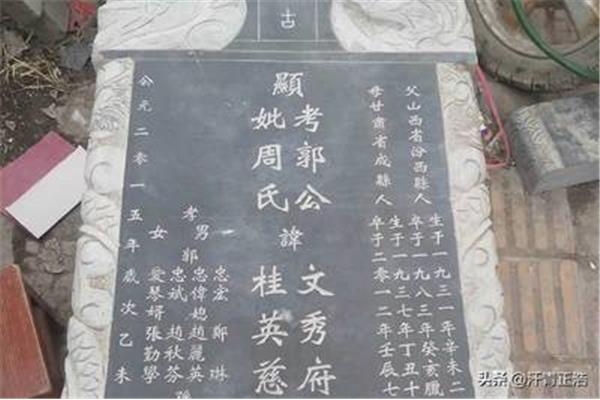 古
父山西省汾西縣人
生于一九三一年辛未二
卒于一九八三年癸亥臘
母甘肅省成縣人
生于一九三七年丁丑十
卒于二零一二年壬辰七
顯
考郭公
妣周氏
諱
文秀府
桂英慈
孝男
郭
忠宏 鄭琳
忠偉媳趙麗英
忠斌 趙秋芬
女 愛琴婿張勤學
公元二零一五年歲次乙未
头条 @汗青正浩